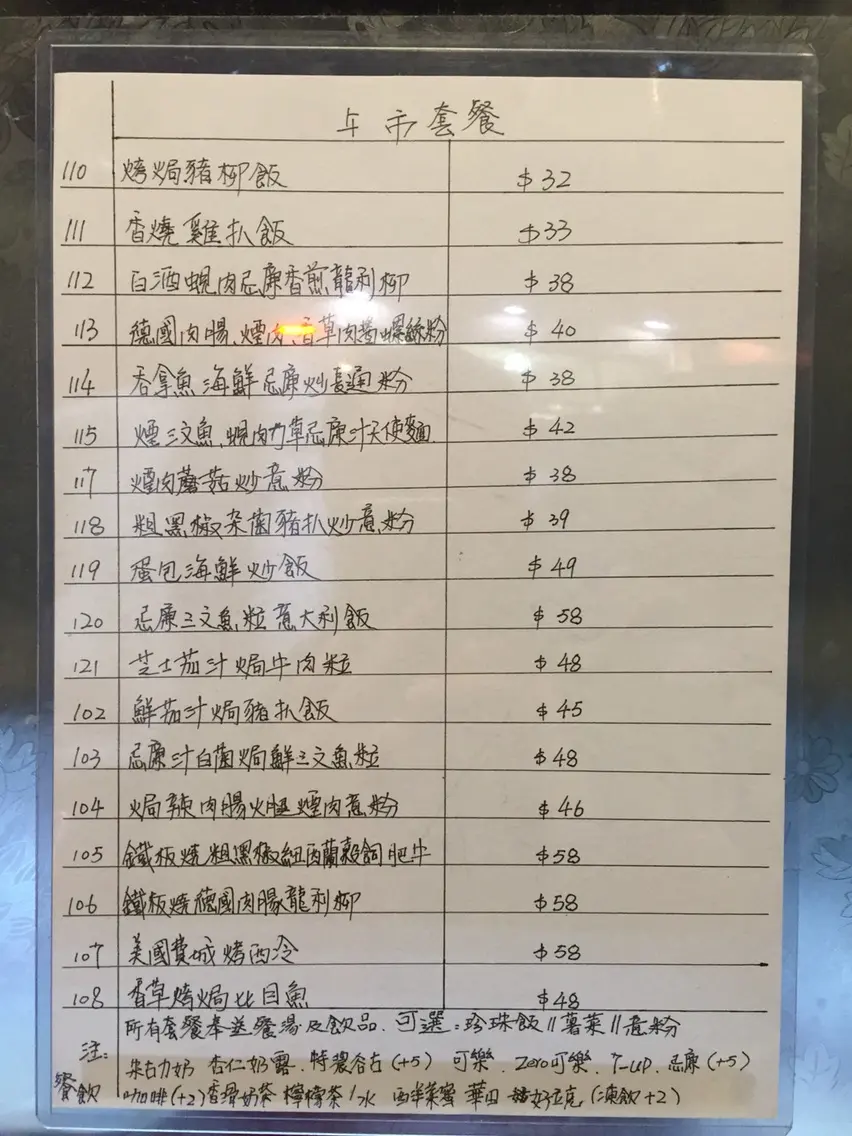 午市套餐
110 烤焗豬柳飯 $32
111 香燒雞扒飯 $33
112 白酒蜆肉忌廉香煎龍利柳 $38
113 德國肉腸、煙肉、香草肉醬螺絲粉 $40
114 吞拿魚海鮮忌廉炒長通粉 $38
115 煙三文魚、蜆肉草忌廉汁天使麵 $42
117 煙肉蘑菇炒意粉 $38
118 粗黑椒杂菌豬扒炒意粉 $39
119 蛋包海鮮炒飯 $49
120 忌廉三文魚粒意大利飯 $58
121 芝士茄汁焗牛肉粒 $48
102 鮮茄汁焗豬扒飯 $45
103 忌廉汁白菌焗鮮三文魚粒 $48
104 焗辣肉腸火腿煙肉意粉 $46
105 鐵板燒粗黑椒紐西蘭穀飼肥牛 $58
106 鐵板燒德國肉腸龍利柳 $58
107 美國費城烤西冷 $58
108 香草烤焗比目魚 $48
所有套餐奉送餐湯及飲品. 可選:珍珠飯//薯菜//意粉
注:
朱古力奶 杏仁奶露. 特濃谷古(+5) 可樂. Zero可樂. 7-UP. 忌廉(+5)
餐飲 咖啡(+2)香滑奶茶 檸檬茶/水 西洋菜蜜 華田 好立克(凍飲+2)